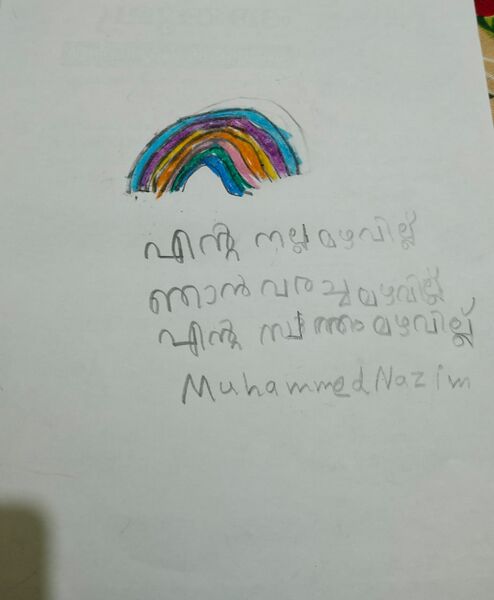 എന്റെ നല്ല മഴവില്ല്
ഞാൻ വരച്ച മഴവില്ല്
എന്റെ സ്വന്തം മഴവില്ല്
Muhammed Nazim